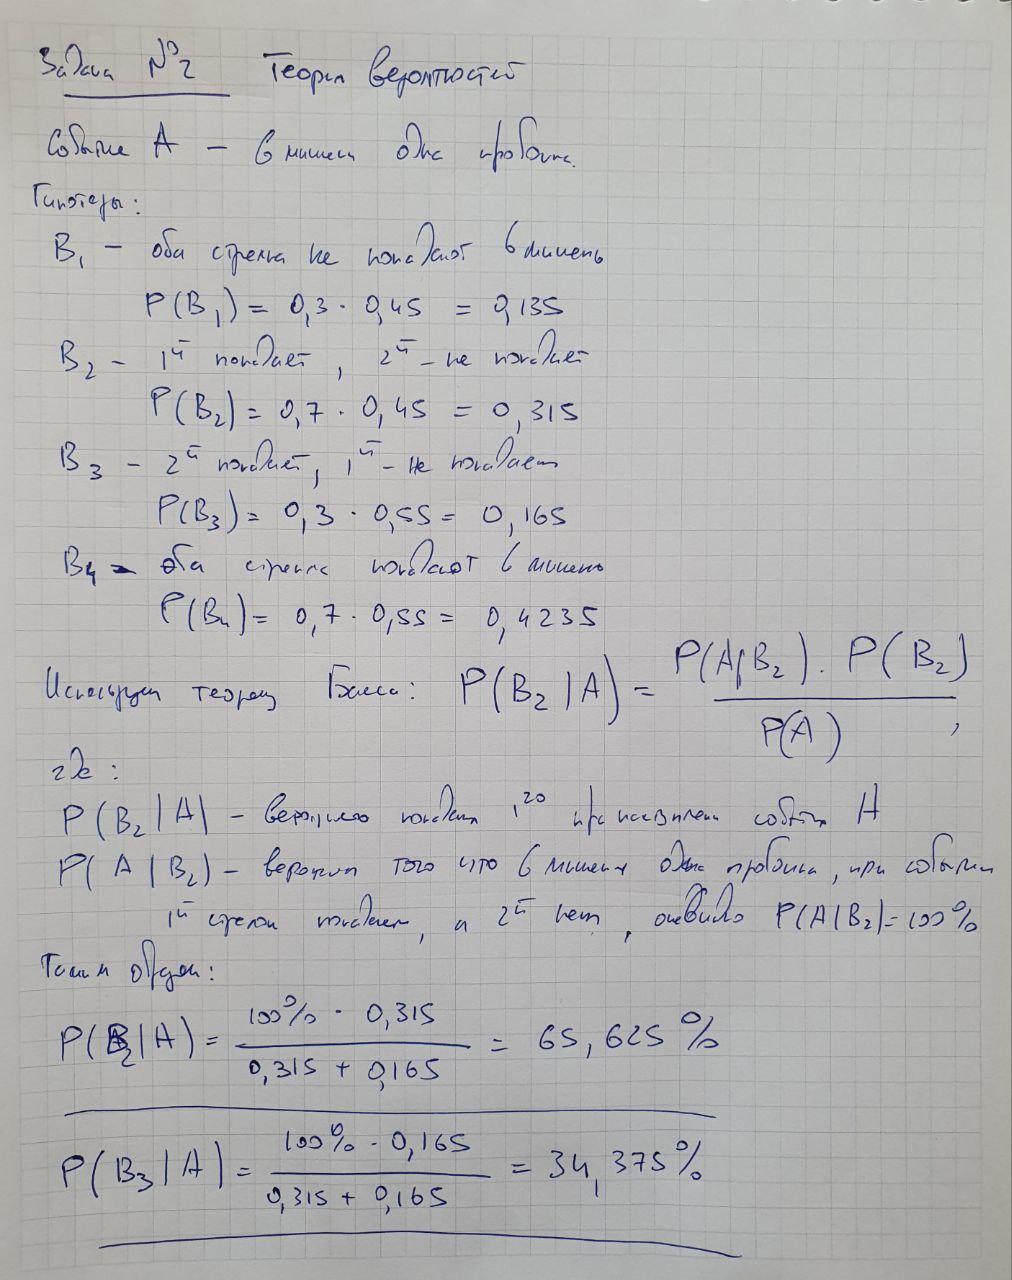 Задача №2 Теория вероятностей
Событие A – в мишени одна пробоина.
Гипотезы:
B₁ – оба стрелка не попадают в мишень
P(B₁) = 0,3 · 0,45 = 0,135
B₂ – 1й попадает, 2й – не попадает
P(B₂) = 0,7 · 0,45 = 0,315
B₃ – 2й попадает, 1й – не попадает
P(B₃) = 0,3 · 0,55 = 0,165
B₄ – оба стрелка попадают в мишень
P(B₄) = 0,7 · 0,55 = 0,4235
Используем теорему Байеса: P(B₂|A) = P(A|B₂) · P(B₂) / P(A) ,
где:
P(B₂|A) – вероятность попадания 1го при наступлении события A
P(A|B₂) – вероятность того что в мишени одна пробоина, при событии
1й стрелок попадает, а 2й нет, очевидно P(A|B₂)=100%
Таким образом:
P(B₂|A) = 100% · 0,315 / 0,315 + 0,165 = 65,625%
P(B₃|A) = 100% · 0,165 / 0,315 + 0,165 = 34,375%